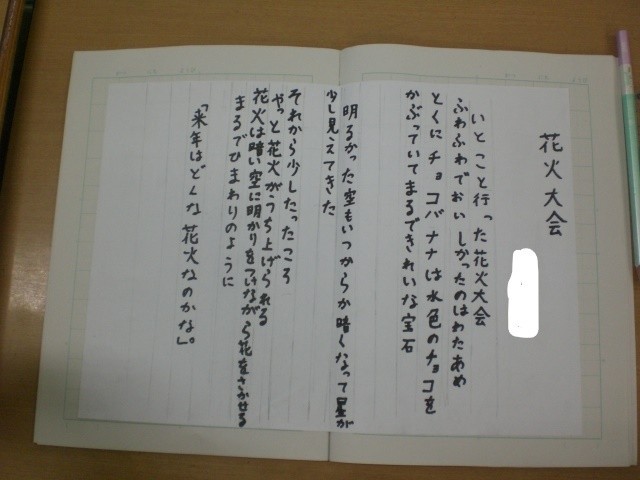 花火大会
いとこと行った花火大会
ふわふわでおいしかったのはわたあめ
とくにチョコバナナは水色のチョコを
かぶっていてまるできれいな宝石
明るかった空もいつからか暗くなって星が
少し見えてきた
それから少したったころ
やっと花火がうち上げられる
花火は暗い空に明かりをつけながら花をさかせる
まるでひまわりのように
「来年はどんな花火なのかな」。